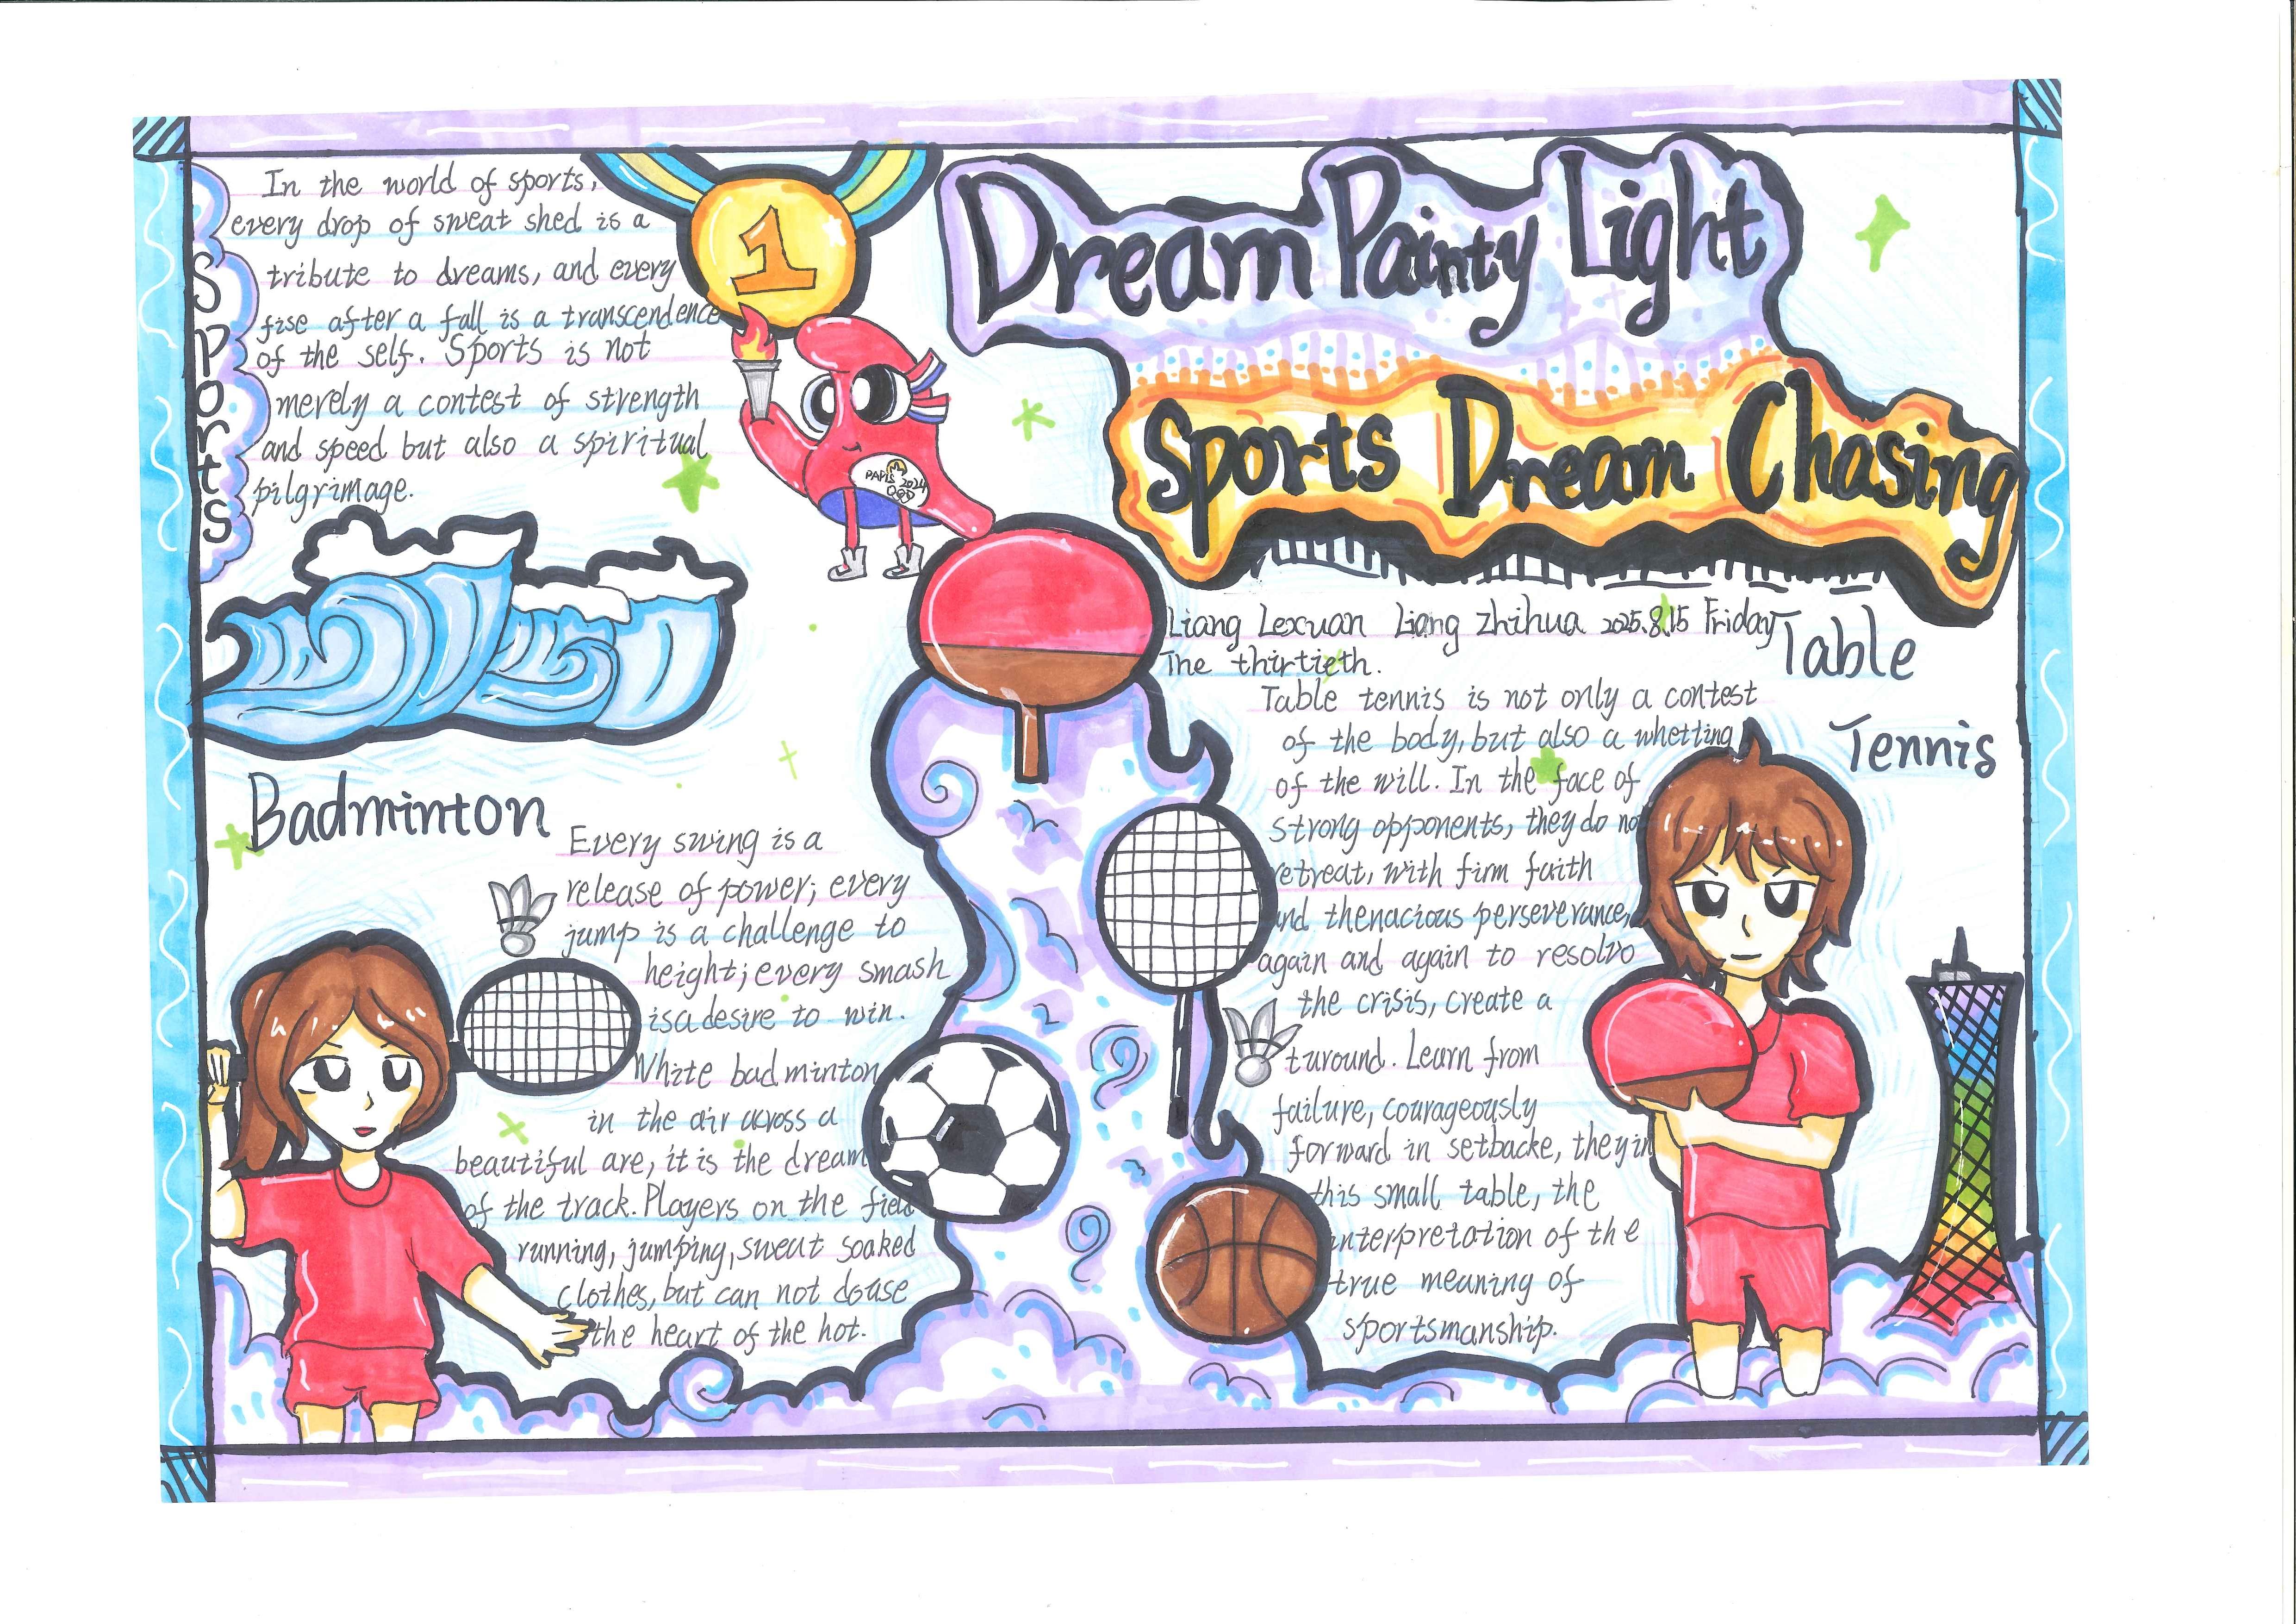 Dream Painty Light
Sports Dream Chasing
Sports
In the world of sports,
every drop of sweat shed is a
tribute to dreams, and every
fise after a fall is a transcendence
of the self. Sports is not
merely a contest of strength
and speed but also a spiritual
pilgrimage.
1
PARIS 2024
Liang Lexuan Liang Zhihua 2025.8.15 Friday
The thirtieth.
Table
Tennis
Table tennis is not only a contest
of the body, but also a whetting
of the will. In the face of
strong opponents, they do not
retreat, with firm faith
and thenacious perseverance,
again and again to resolvo
the crisis, create a
turound. Learn from
failure, courageously
forward in setbacke, they in
this small table, the
interpretation of the
true meaning of
sportsmanship.
Badminton
Every swing is a
release of power; every
jump is a challenge to
height; every smash
is a desire to win.
White badminton
in the air across a
beautiful are, it is the dream
of the track. Players on the field
running, jumping, sweat soaked
clothes, but can not douse
the heart of the hot.